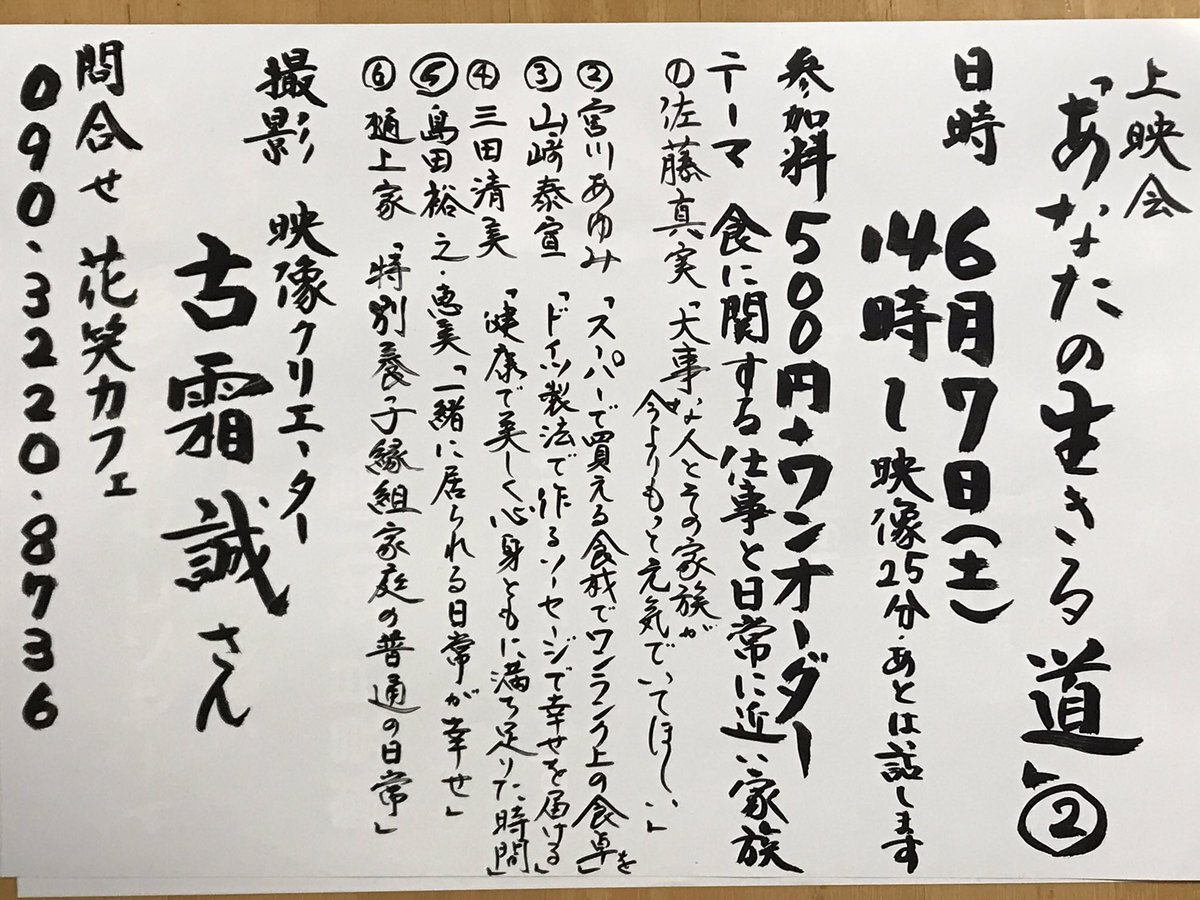 上映会
「あなたの生きる道」②
日時 6月7日(土)
14時〜映像25分・あとは話します
参加料 500円+ワンオーダー
テーマ 食に関する仕事と日常に近い家族
①佐藤真実「大事な人とその家族が
今よりもっと元気でいてほしい」
②宮川あゆみ「スーパーで買える食材でワンランク上の食卓を」
③山﨑泰宣「ドイツ製法で作るソーセージで幸せを届ける」
④三田清美「健康で美しく心身ともに満ち足りた時間」
⑤島田裕之・恵美「一緒に居られる日常が幸せ」
⑥樋上家「特別養子縁組家庭の普通の日常」
撮影 映像クリエーター
古霜誠さん
問合せ 花笑カフェ
090.3220.8736